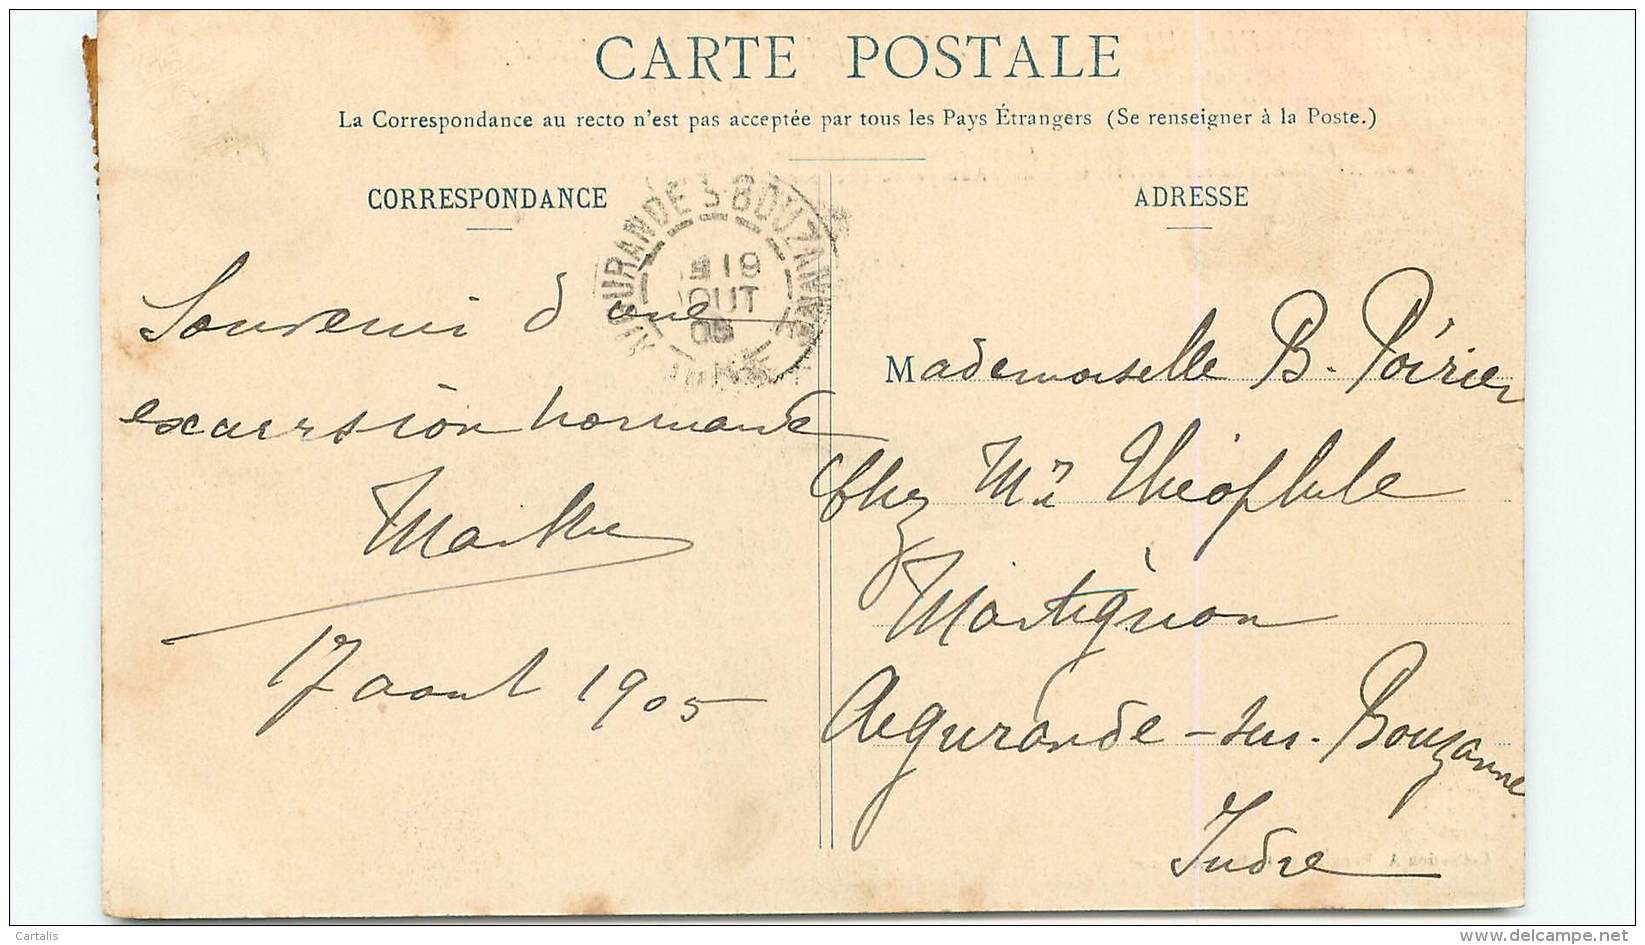 CARTE POSTALE
La Correspondance au recto n'est pas acceptée par tous les Pays Étrangers (Se renseigner à la Poste.)
CORRESPONDANCE
Souvenir d'une
excursion normande
17 aout 1905
AIGURANDE S BOUZANNE
19
AOUT
05
INDRE
ADRESSE
Mademoiselle B. Poirier
Chez Mr Théophile
Martignon
Aigurande-sur-Bouzanne
Indre
Cartalis
www.delcampe.net